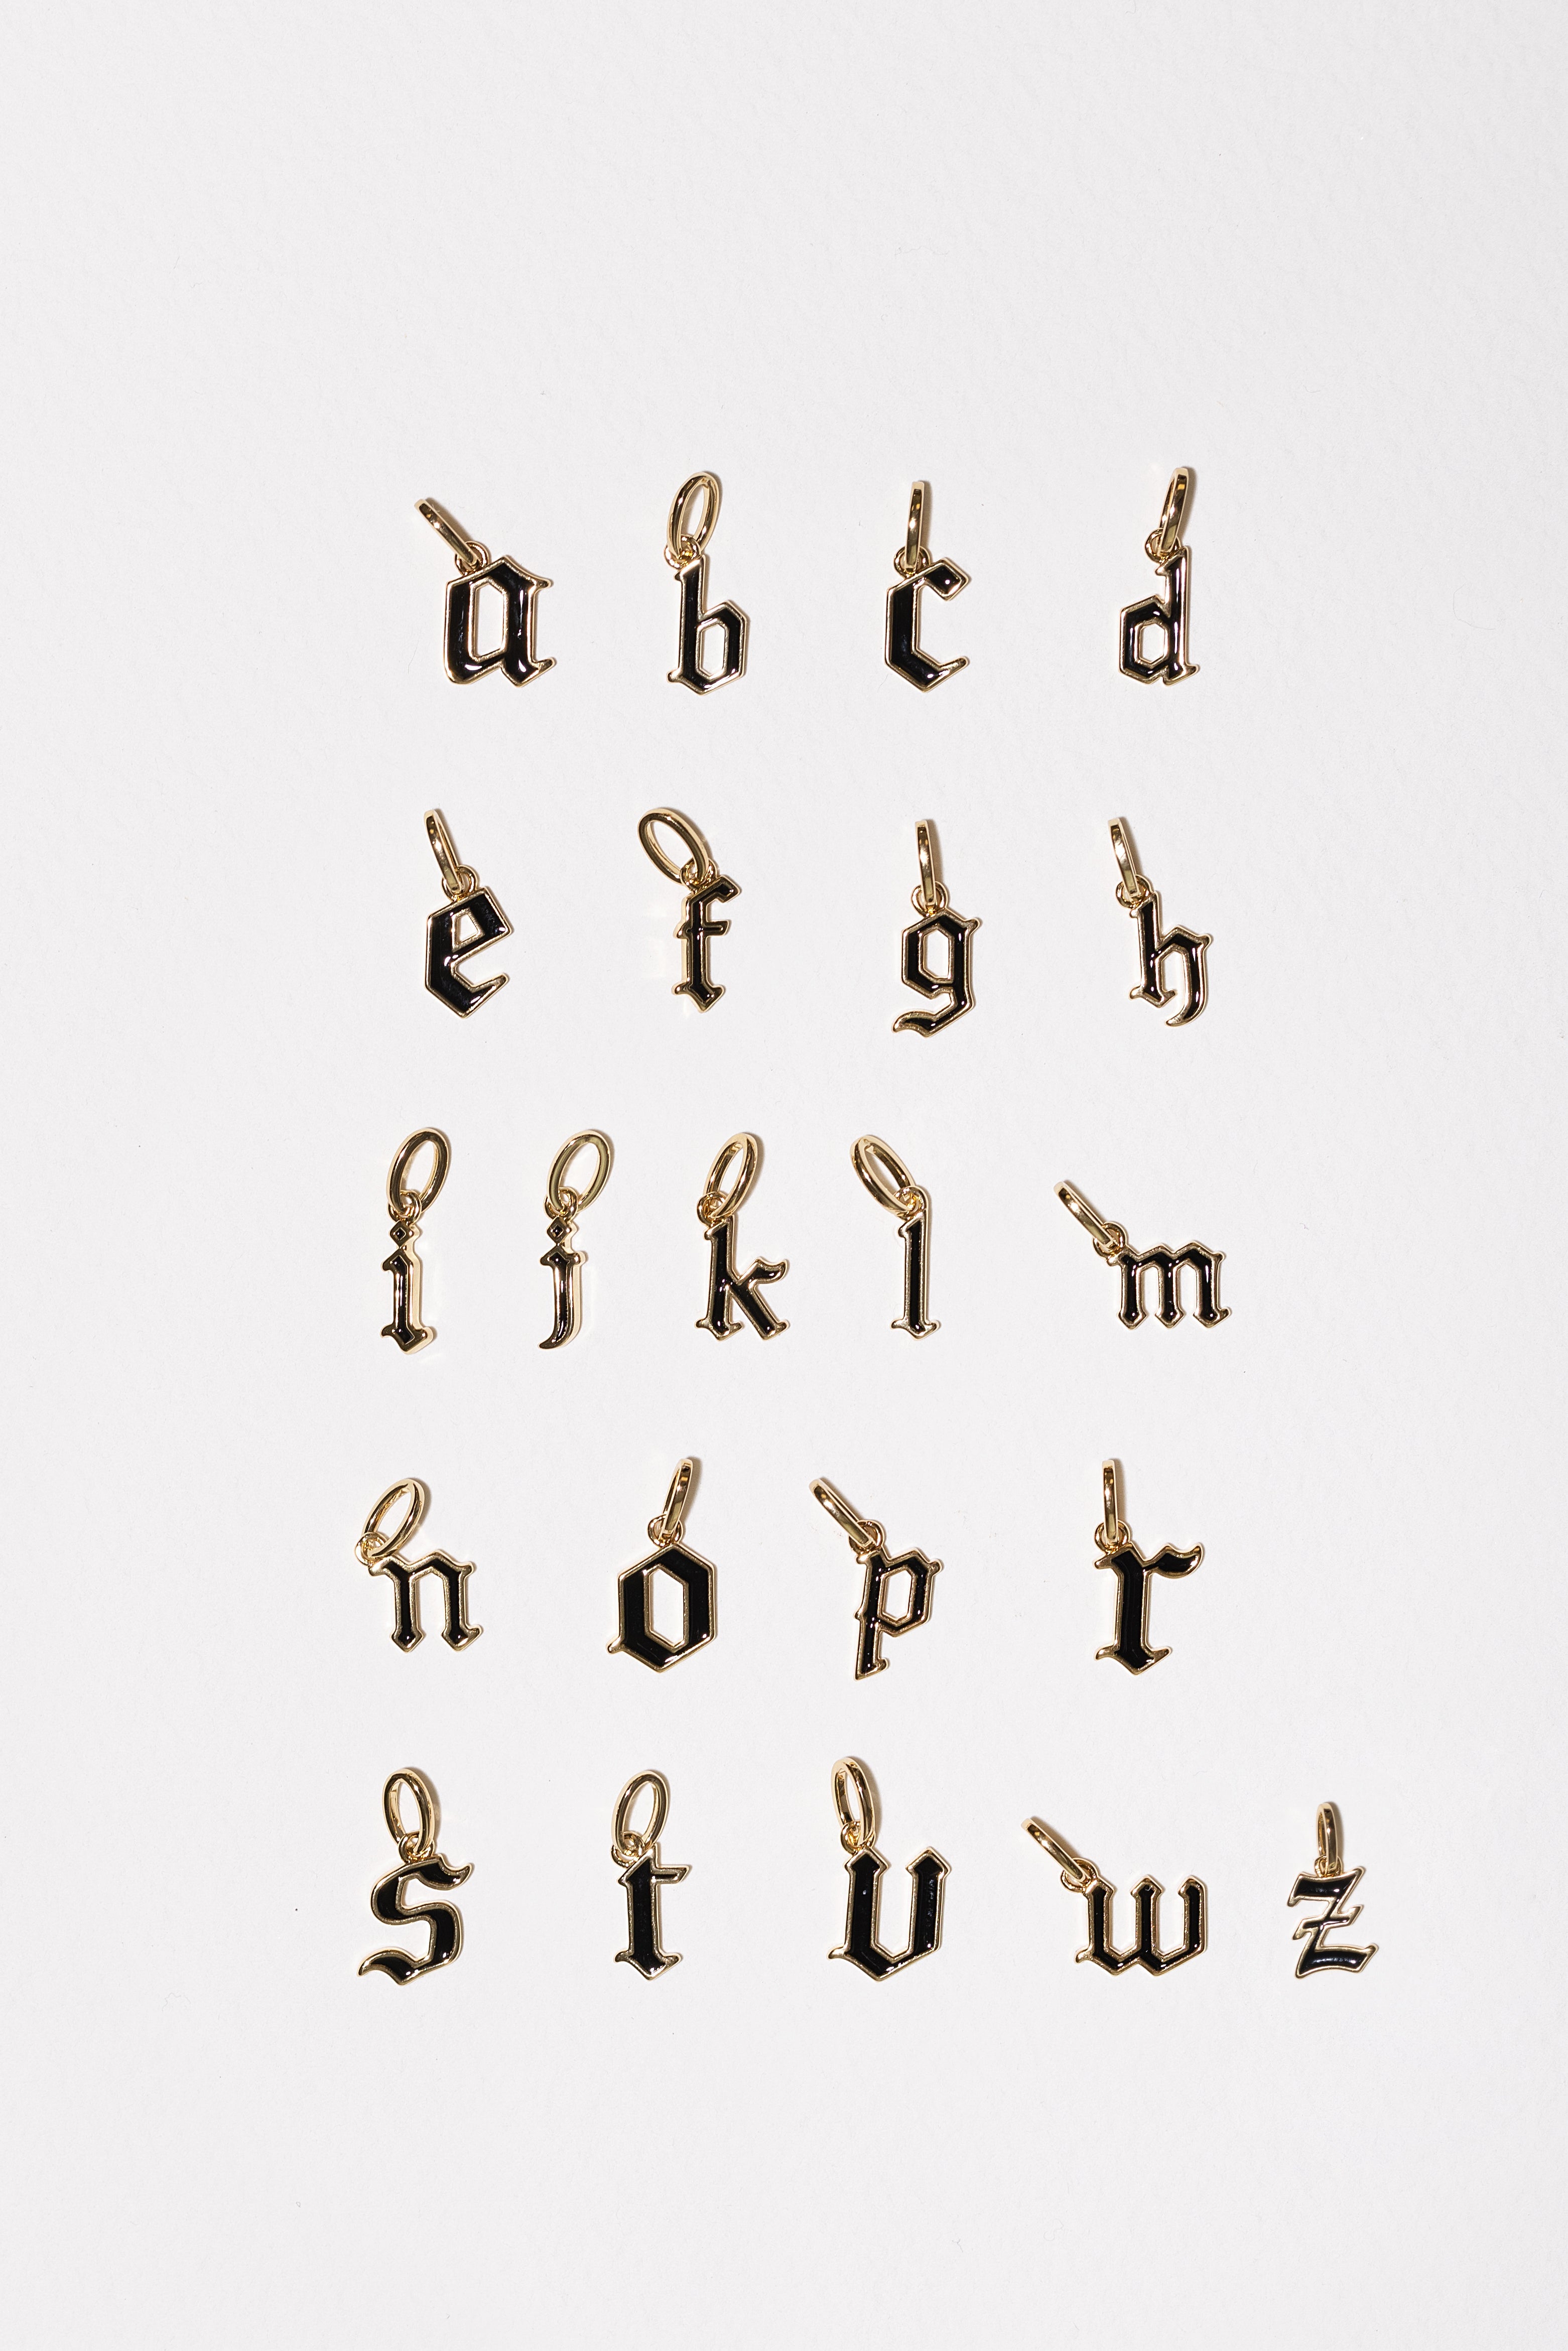 a b c d
e f g h
i j k l m
n o p r
s t v w z